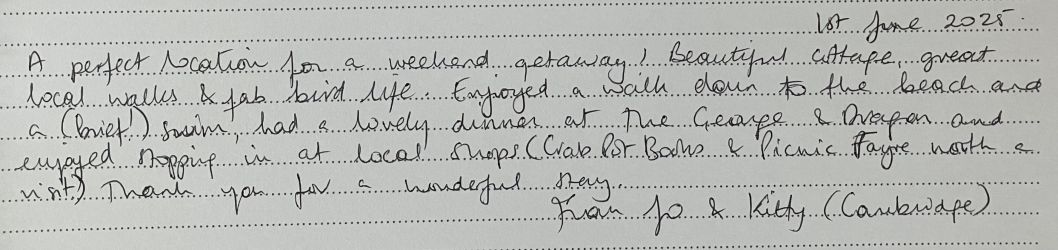 1st June 2025.
A perfect location for a weekend getaway! Beautiful cottage, great
local walks & fab bird life. Enjoyed a walk down to the beach and
a (brief!) swim, had a lovely dinner at The George & Dragon and
enjoyed stopping in at local shops (Crab Pot Books & Picnic Fayre worth a
visit!) Thank you for a wonderful stay.
From Jo & Kitty (Cambridge)